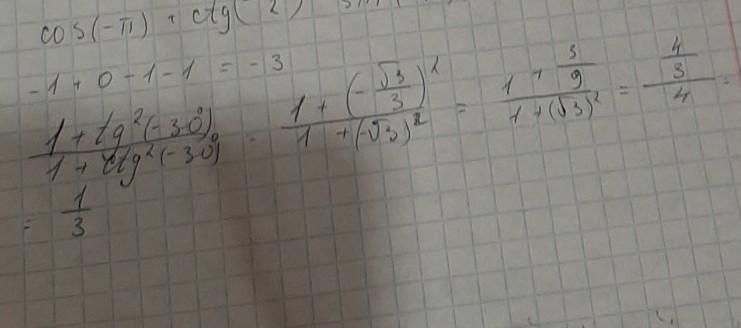 cos(-π) + ctg(- 2)
-1 + 0 - 1 - 1 = -3
(1 + tg²(-30°))/(1 + ctg²(-30°)) = (1 + (-√3/3)²)/(1 + (-√3)²) = (1 + 3/9)/(1 + (√3)²) = (4/3)/4 =
= 1/3